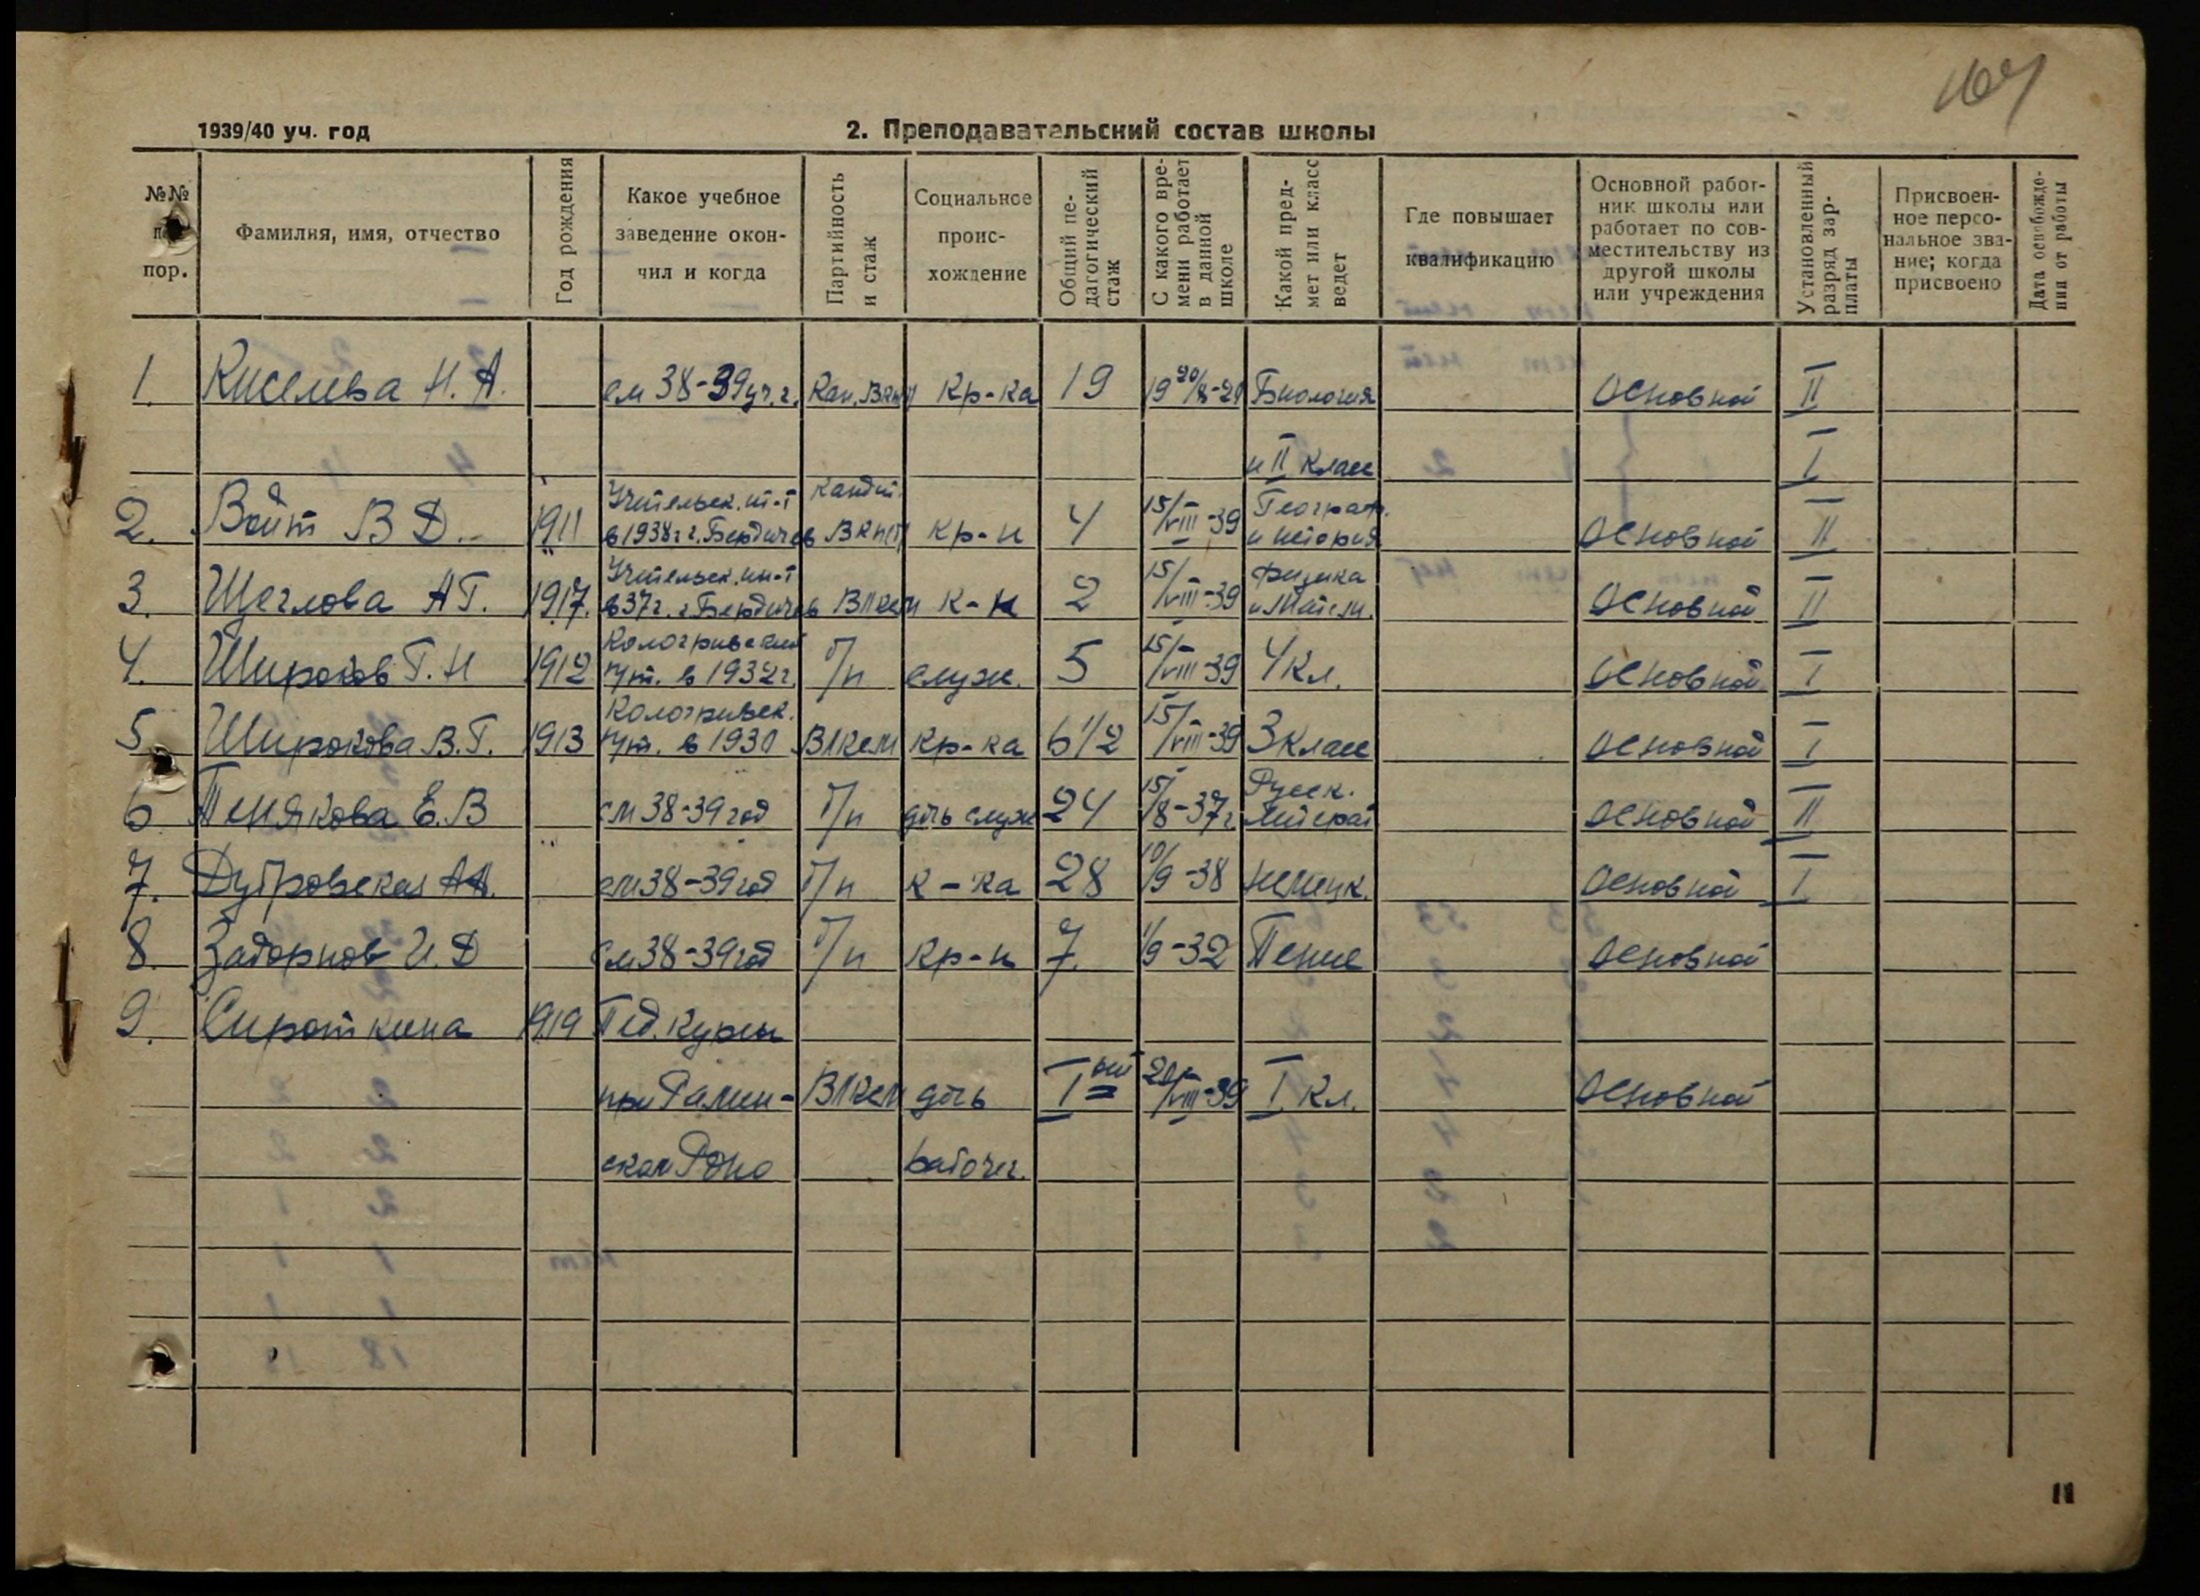 167
1939/40 уч. год
2. Преподавательский состав школы
№№ по пор. | Фамилия, имя, отчество | Год рождения | Какое учебное заведение окончил и когда | Партийность и стаж | Социальное происхождение | Общий педагогический стаж | С какого времени работает в данной школе | Какой предмет или класс ведет | Где повышает квалификацию | Основной работник школы или работает по совместительству из другой школы или учреждения | Установленный разряд зарплаты | Присвоенное персональное звание; когда присвоено | Дата освобождения от работы
1. Киселева Н. А. см 38-39 уч. г. Кан. ВКП Кр-ка 19 Биология Основной II
и II Класс I
2. Войт В Д. 1911 Учительск. ин-т в 1938 г г. Бердичев Кандит. ВКП(б) кр-н 4 15/VIII-39 Географ. и история Основной II
3. Щеглова А Г. 1917. Учительск. ин-т в 37 г. г. Бердичев ВЛКСМ К-н 2 15/VIII-39 Физика и Матем. Основной II
4. Широков Г. Н 1912 Кологривский в 1932 г. б/п служ. 5 15/VIII-39 4 Кл. Основной I
5 Широкова В. Г. 1913 Кологривск. в 1930 ВЛКСМ Кр-ка 6 1/2 15/VIII-39 3 Класс Основной I
6 Пенякова Е. В см 38-39 год б/п дочь служ 24 15/8-37 г Русск. Литерат Основной II
7. Дубровская А А. см 38-39 год б/п к-ка 28 10/9-38 немецк. Основной I
8. Задорнов И. Д см 38-39 год б/п Кр-н 7. 1/9-32 Пение Основной
9. Сироткина 1919 Пед. Курсы
при ВЛКСМ дочь I ый 20/VIII-39 I Кл. Основной
ском Роно рабочег.
11